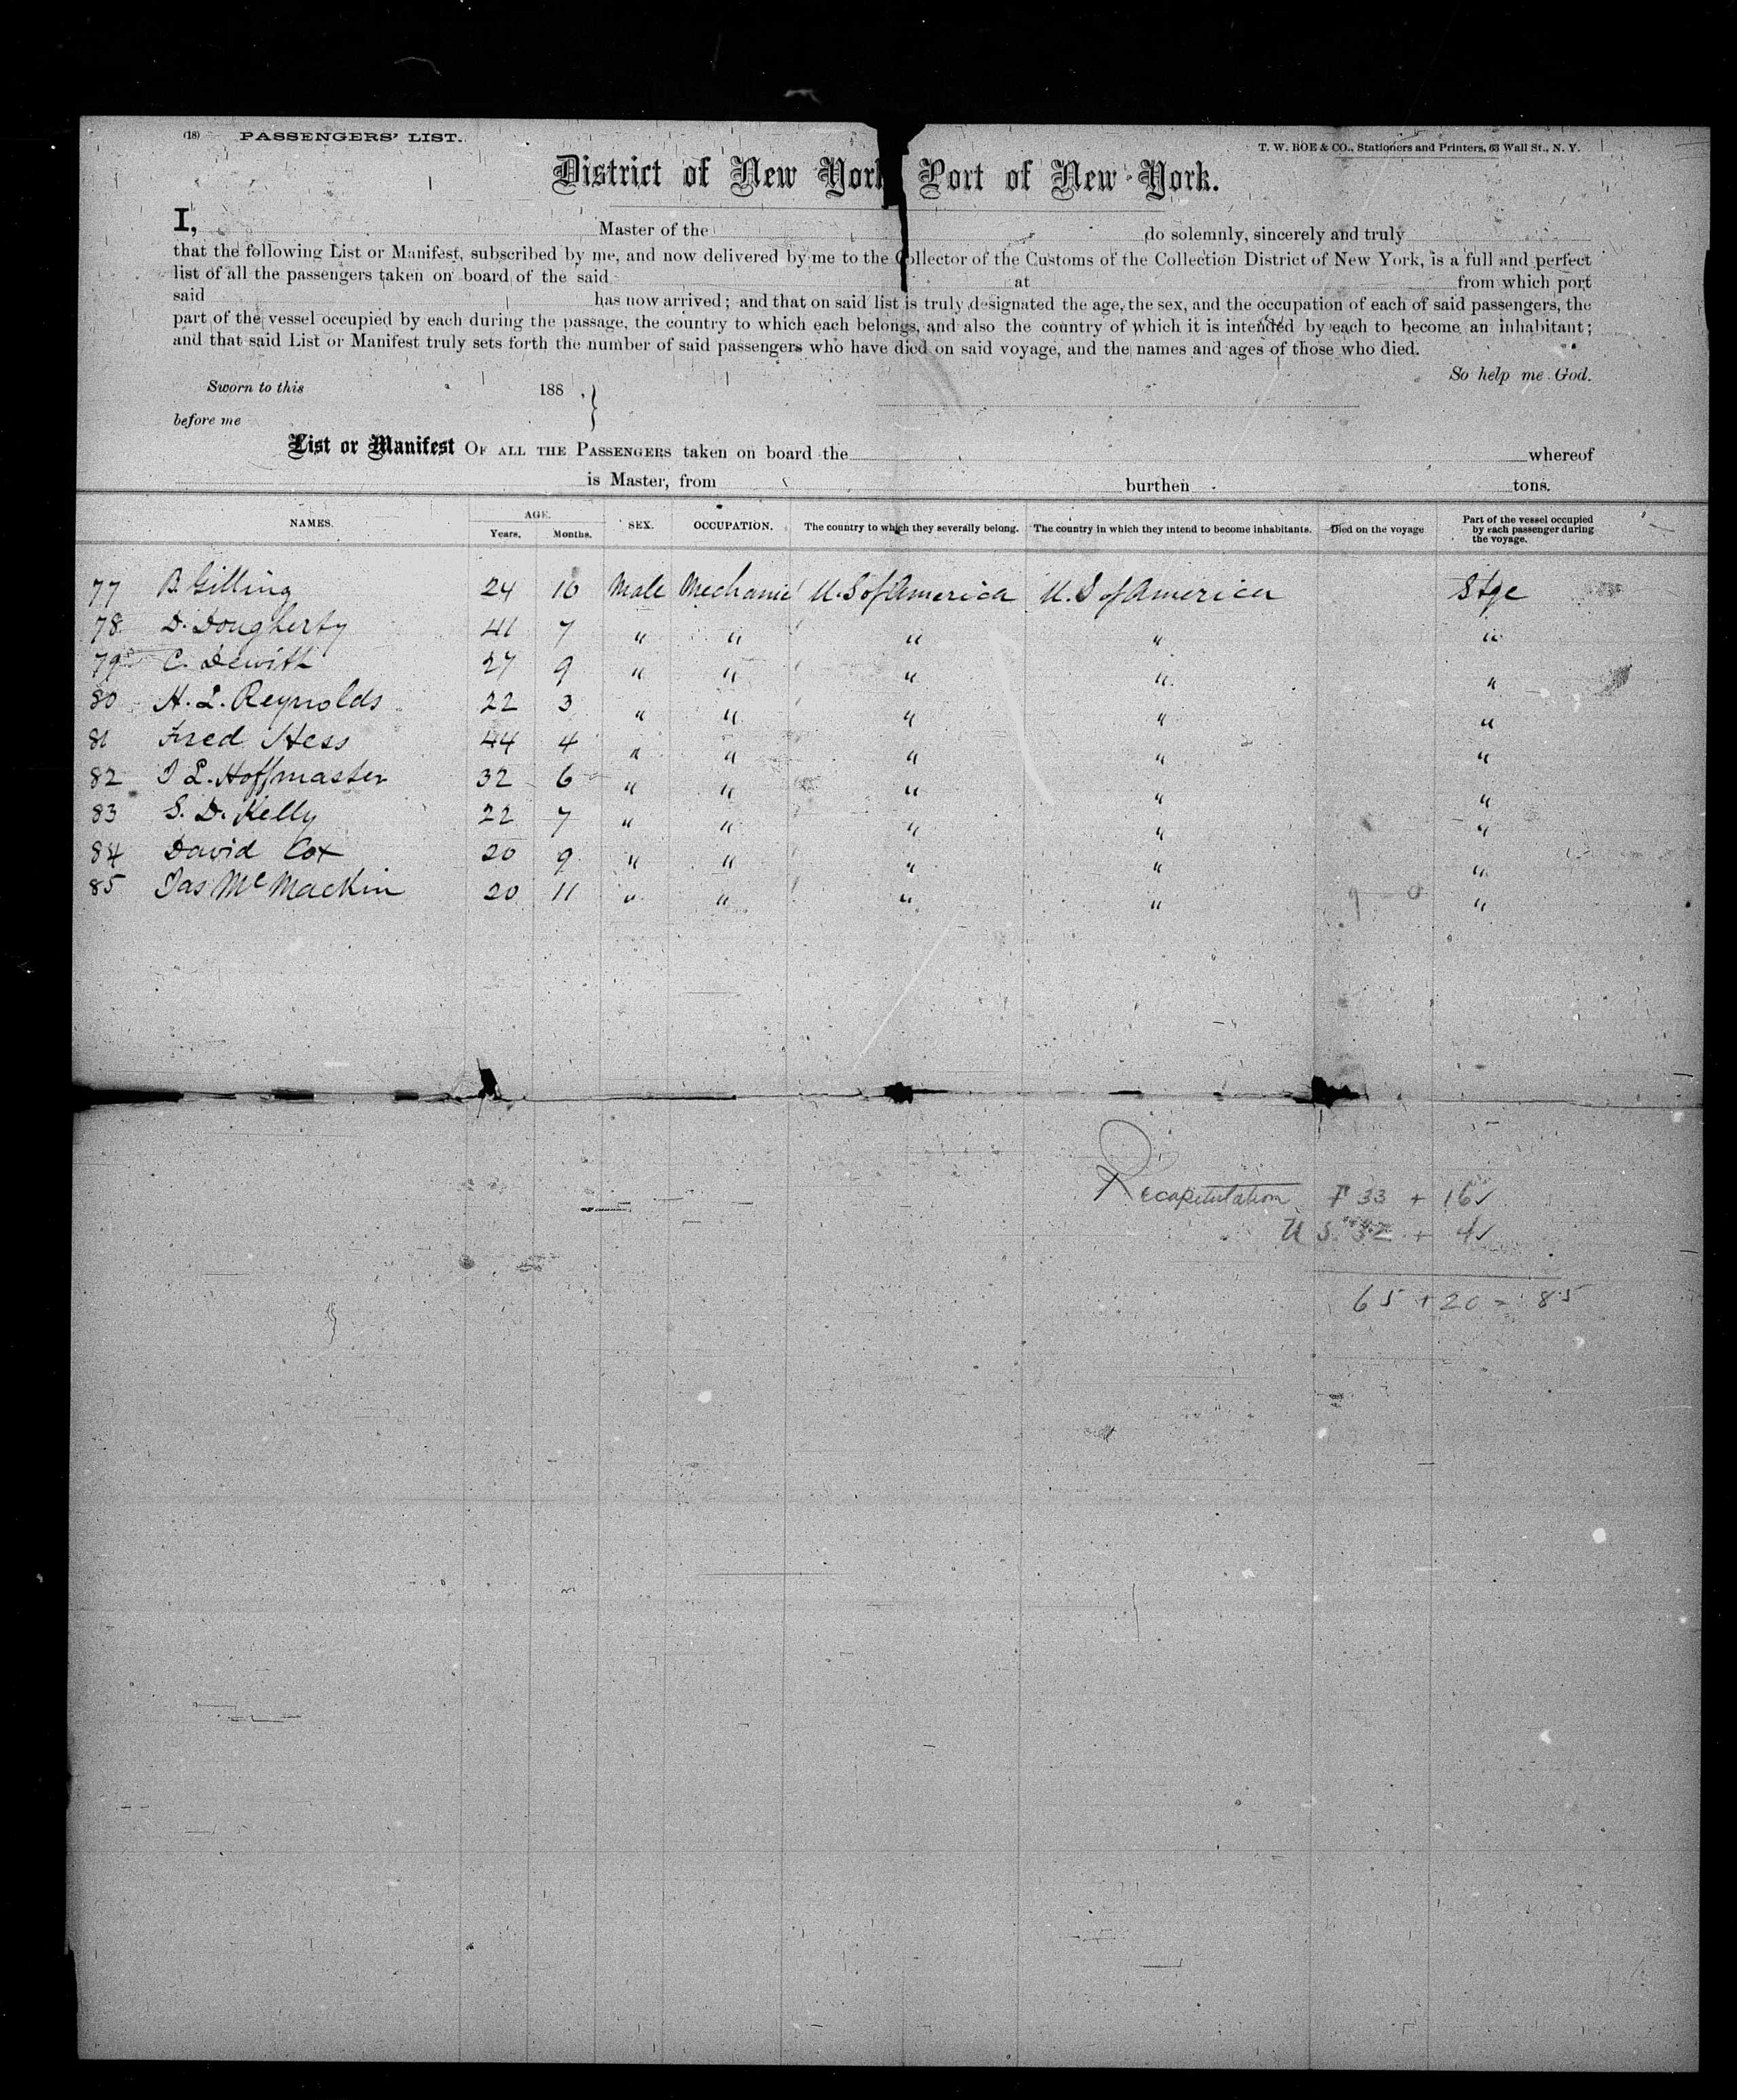 (18) PASSENGERS' LIST.
T. W. ROE & CO., Stationers and Printers, 63 Wall St., N. Y.
District of New York Port of New York.
I, Master of the do solemnly, sincerely and truly
that the following List or Manifest, subscribed by me, and now delivered by me to the Collector of the Customs of the Collection District of New York, is a full and perfect
list of all the passengers taken on board of the said at from which port
said has now arrived; and that on said list is truly designated the age, the sex, and the occupation of each of said passengers, the
part of the vessel occupied by each during the passage, the country to which each belongs, and also the country of which it is intended by each to become an inhabitant;
and that said List or Manifest truly sets forth the number of said passengers who have died on said voyage, and the names and ages of those who died.
So help me God.
Sworn to this 188 ,
before me
List or Manifest OF ALL THE PASSENGERS taken on board the whereof
is Master, from burthen tons.
NAMES. AGE. Years. Months. SEX. OCCUPATION. The country to which they severally belong. The country in which they intend to become inhabitants. Died on the voyage Part of the vessel occupied by each passenger during the voyage.
77 B. Gilling 24 10 Male Mechanic U.S of America U.S of America Stge
78 D. Dougherty 41 7 " " " " "
79 C. Dewith 27 9 " " " " "
80 H. L. Reynolds 22 3 " " " " "
81 Fred Hess 44 4 " " " " "
82 J L. Hoffmaster 32 6 " " " " "
83 S. D. Kelly 22 7 " " " " "
84 David Cox 20 9 " " " " "
85 Jas McMackin 20 11 " " " " "
Recapitulation F 33 + 16
U S. 32 + 4
65 + 20 = 85